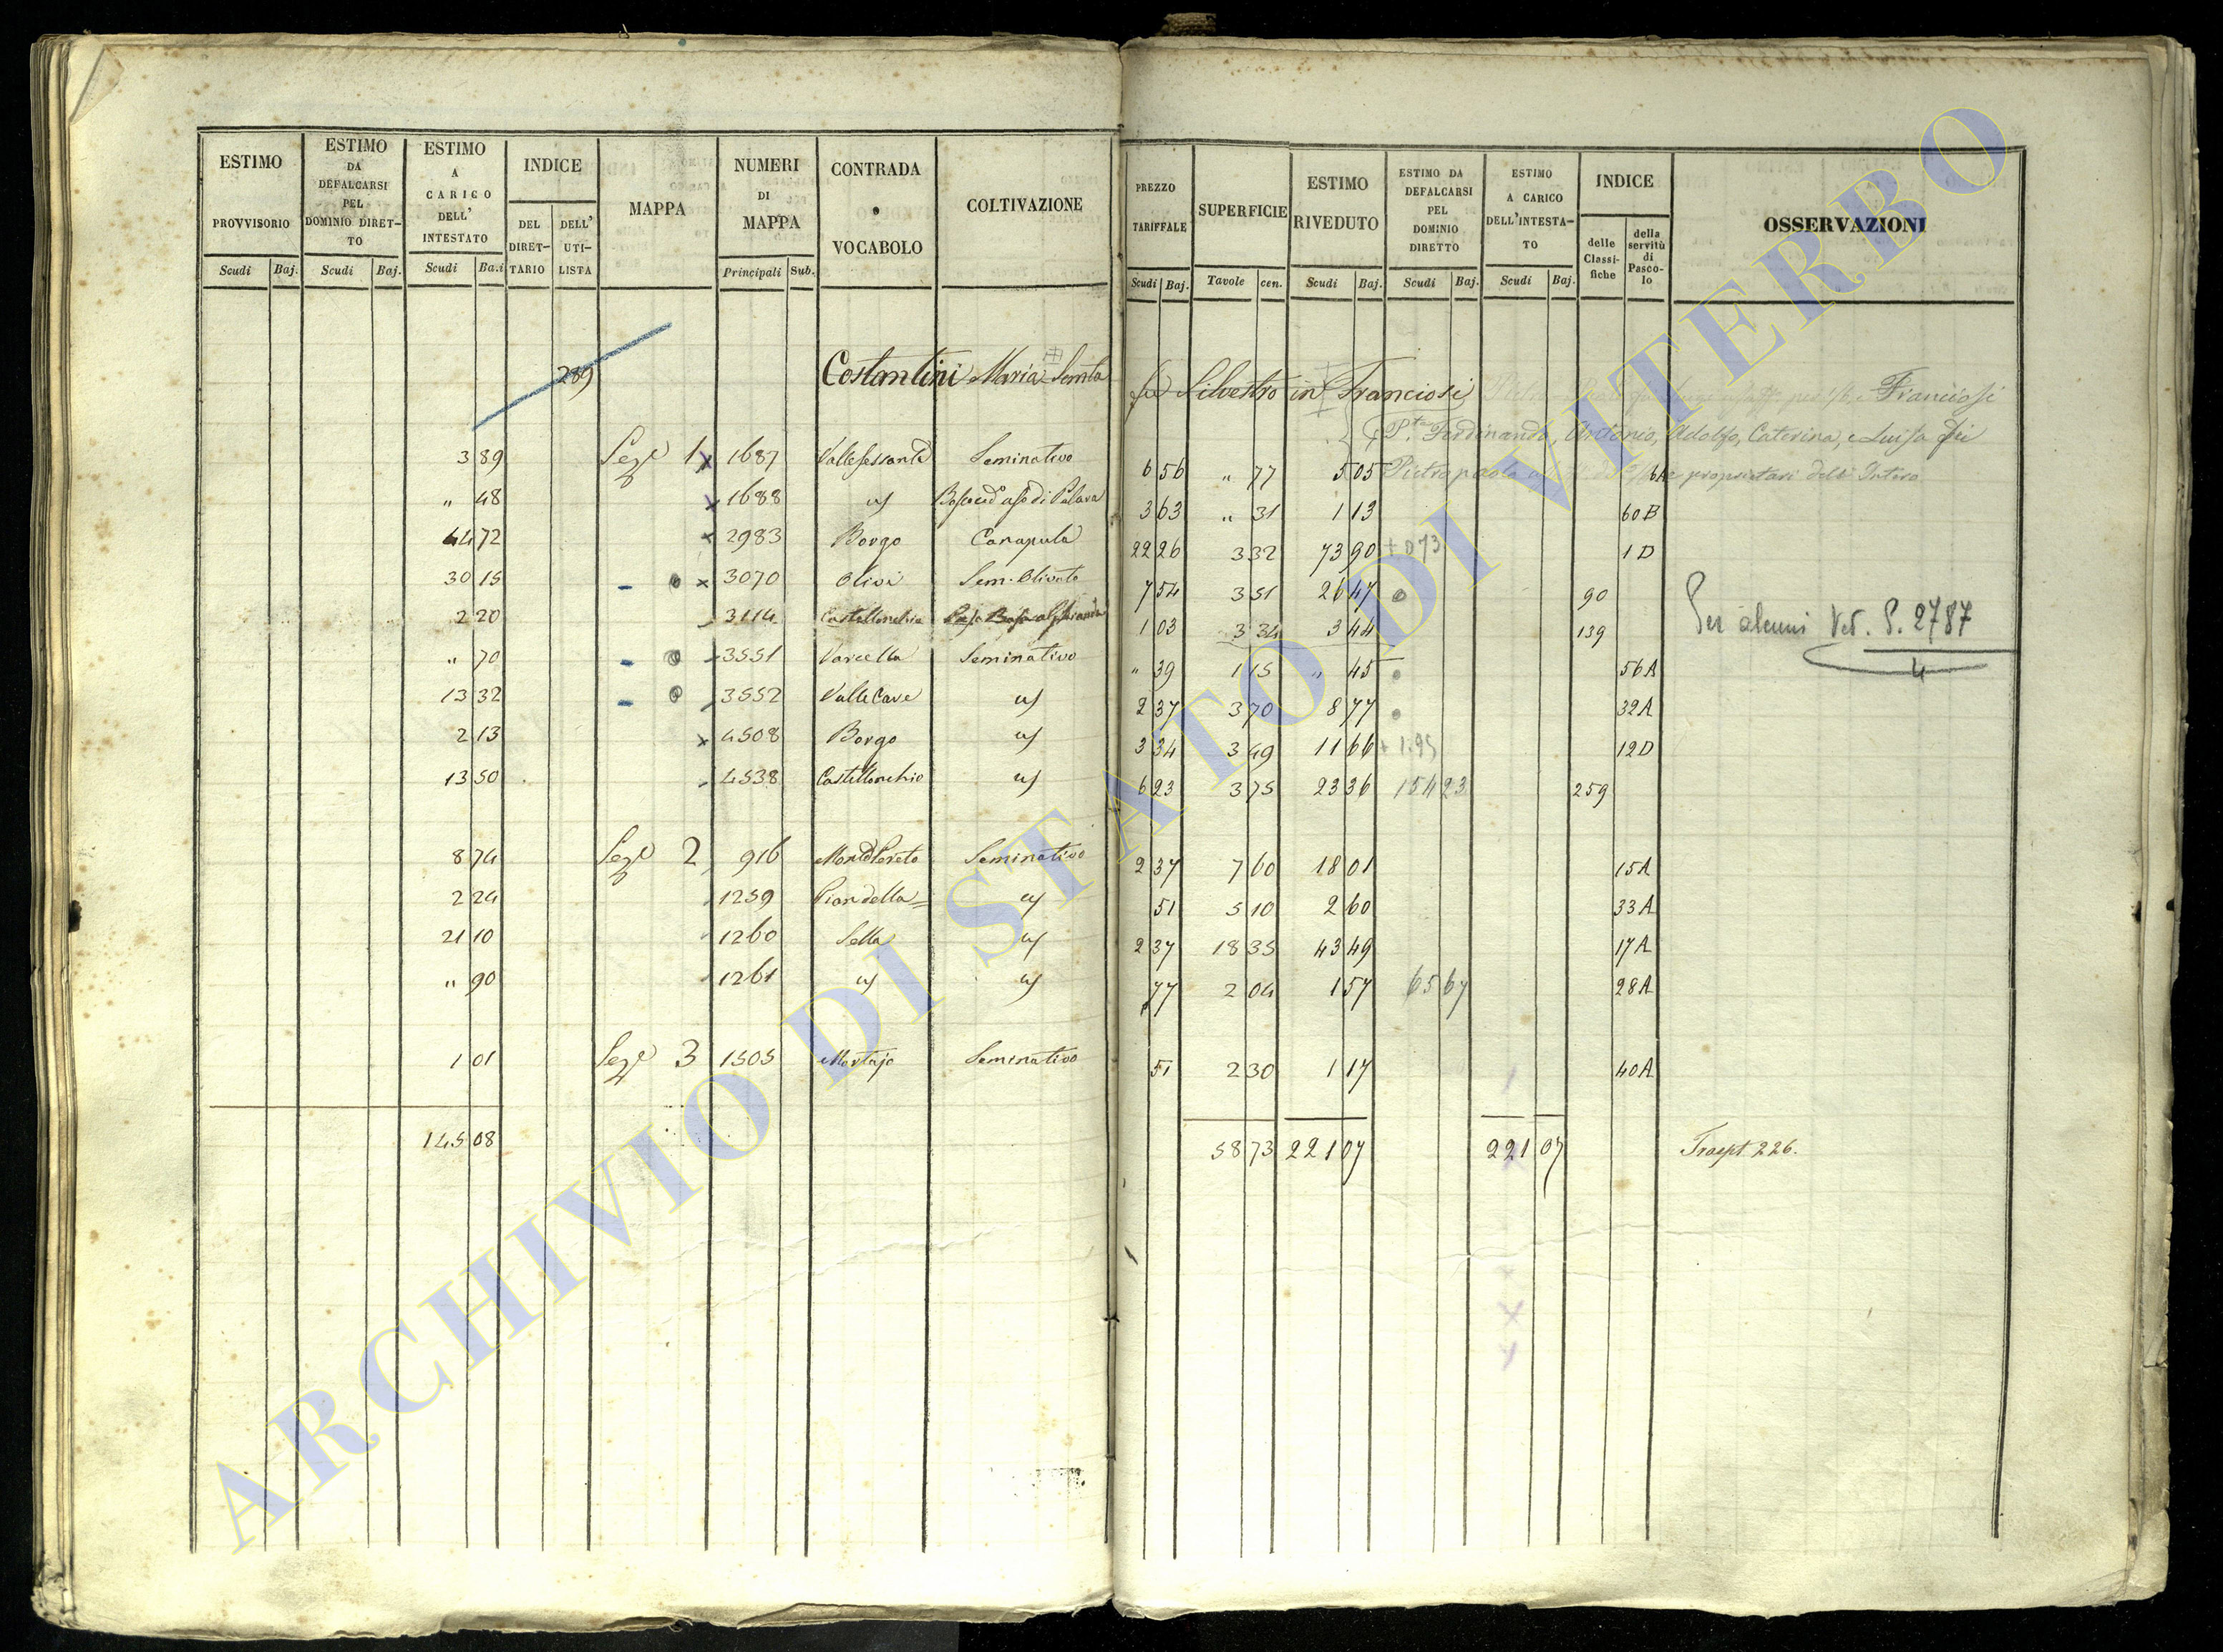 ESTIMO PROVVISORIO Scudi Baj.
ESTIMO DA DEFALCARSI PEL DOMINIO DIRET-TO Scudi Baj.
ESTIMO A CARICO DELL' INTESTATO Scudi Ba.i
INDICE DEL DIRET-TARIO DELL' UTI-LISTA
MAPPA
NUMERI DI MAPPA Principali Sub.
CONTRADA o VOCABOLO
COLTIVAZIONE
PREZZO TARIFFALE Scudi Baj.
SUPERFICIE Tavole cen.
ESTIMO RIVEDUTO Scudi Baj.
ESTIMO DA DEFALCARSI PEL DOMINIO DIRETTO Scudi Baj.
ESTIMO A CARICO DELL'INTESTA-TO Scudi Baj.
INDICE delle Classi-fiche della servitù di Pasco-lo
OSSERVAZIONI
289 Costantini Maria Santa fu Silvestro in Franciosi Franciosi
Ferdinando, Antonio, Adolfo, Caterina, e Luisa fu
Pietropaolo proprietari dell' Intero
3 89 Sez.e 1 x 1687 Seminativo 6 56 " 77 5 05
" 48 x 1688 id 3 63 " 31 1 13 60B
44 72 x 2983 Borgo Canapula 22 26 3 32 73 90 + 0 73 1 D
30 15 - x 3070 Olivi Sem. Olivato 7 54 3 51 26 47 90
2 20 3114 Castellonchio 1 03 3 34 3 44 139 Per alcuni Ved. P. 2787
4
" 70 - 3551 Varcella Seminativo " 39 1 15 " 45 56A
13 32 - 3552 Valle Cave id 2 37 3 70 8 77 32A
2 13 x 4508 Borgo id 3 34 3 49 11 66 + 1.95 12D
13 50 4538 Castellonchio id 6 23 3 75 23 36 154 23 259
8 74 Sez.e 2 916 Seminativo 2 37 7 60 18 01 15A
2 24 1259 Piandella= id 51 5 10 2 60 33A
21 10 1260 Sella id 2 37 18 35 43 49 17A
" 90 1261 id id 77 2 04 1 57 65 67 28A
1 01 Sez.e 3 1505 Mortajo Seminativo 51 2 30 1 17 40A
145 08 58 73 221 07 221 07 Trasp.t 226.
ARCHIVIO DI STATO DI VITERBO